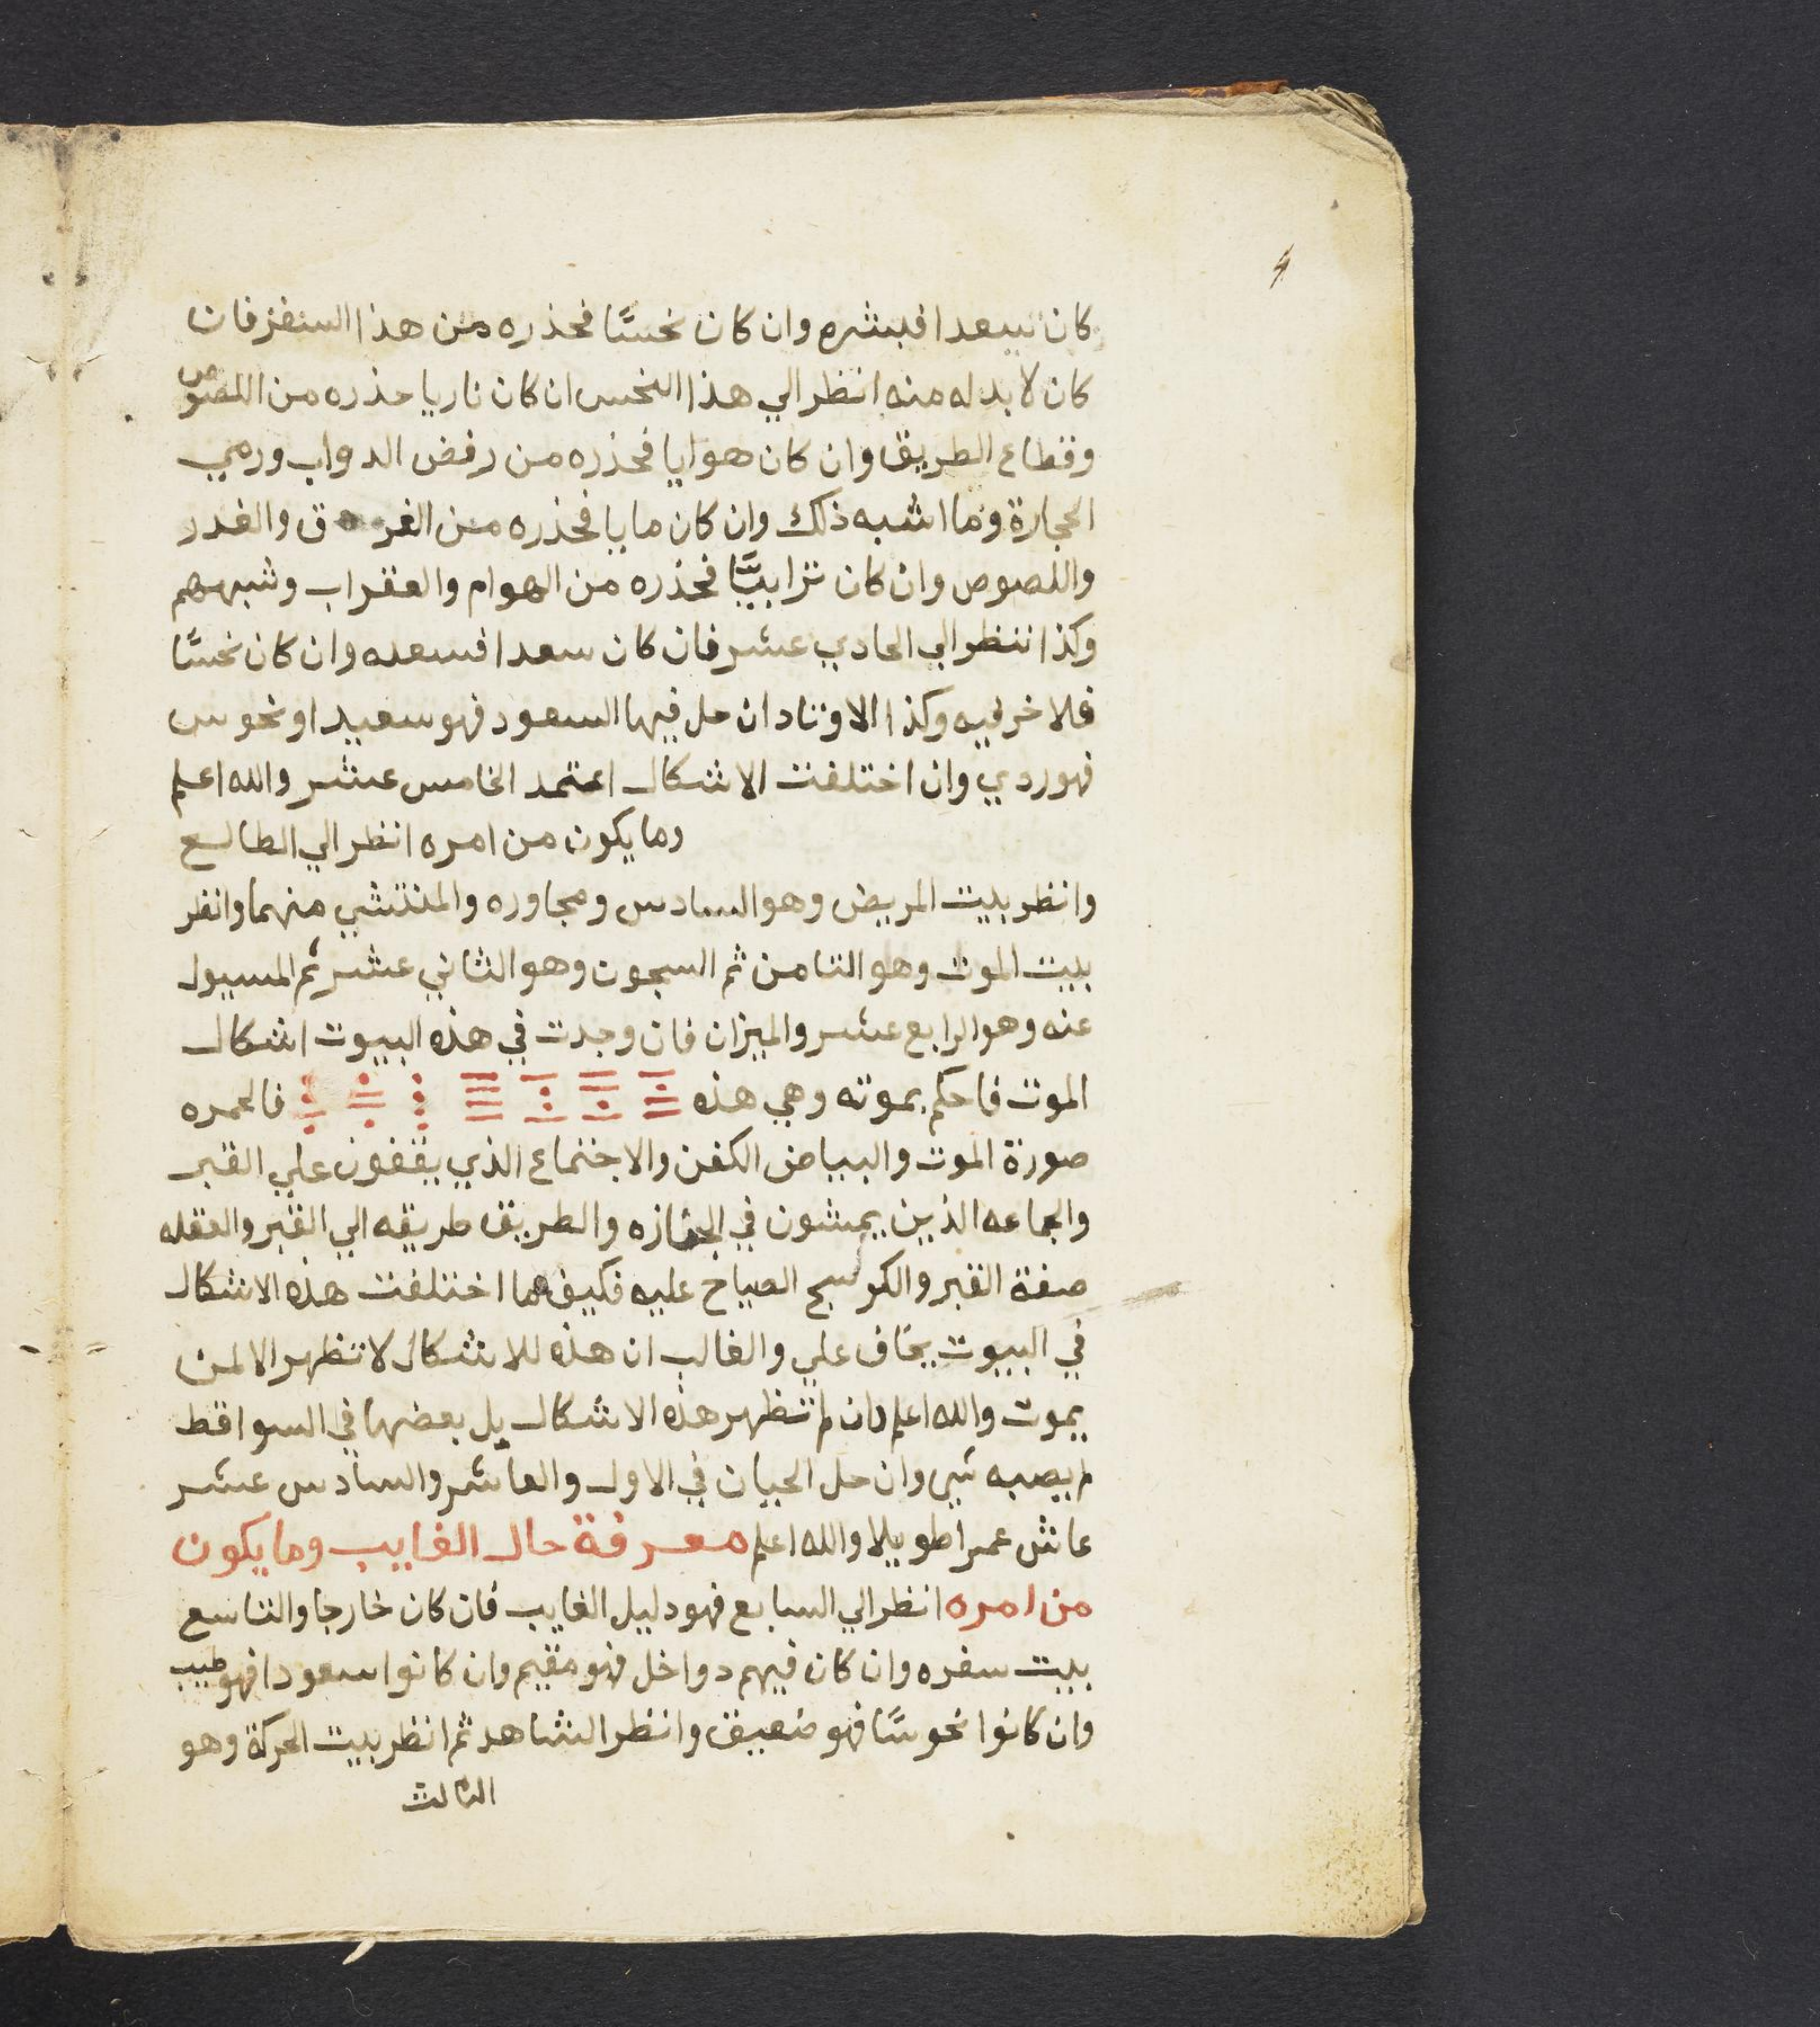 كان سعدا فبشره وان كان نحسًا فحذره من هذا السفر فان
كان لا بد له منه انظر الي هذا النحس ان كان ناريا حذره من اللصوص
وقطاع الطريق وان كان هوايا فحذره من رفض الدواب ورمي
الحجارة وما اشبه ذلك وان كان مايا فحذره من الغرق والغدر
واللصوص وان كان ترابيًّا فحذره من الهوام والعقراب وشبههم
وكذا تنظر الي الحادي عشر فان كان سعدا فسعده وان كان نحسًا
فلا خر فيه وكذا الاوتاد ان حل فيها السعود فهو سعيد او نحوس
فهو ردي وان اختلفت الاشكال اعتمد الخامس عشر والله اعلم
وما يكون من امره انظر الي الطالع
وانظر بيت المريض وهو السادس ومجاوره والمنتشي منهما وانظر
بيت الموت وهو الثامن ثم السجون وهو الثاني عشر ثم المسيول
عنه وهو الرابع عشر والميزان فان وجدت في هذه البيوت اشكال
الموت فاحكم بموته وهي هذه فالحمره
صورة الموت والبياض الكفن والاجتماع الذي يقفون علي القبر
والجماعه الذين يمشون في الجنازه والطريق طريقه الي القبر والعقله
صفة القبر والكوسج الصياح عليه فكيف ما اختلفت هذه الاشكال
في البيوت يخاف علي والغالب ان هذه للاشكال لا تظهر الا لمن
يموت والله اعلم وان لم تظهر هذه الاشكال بل بعضها في السواقط
لم يصبه شي وان حل الحيان في الاول والعاشر والسادس عشر
عاش عمرا طويلا والله اعلم معرفة حال الغايب وما يكون
من امره انظر الي السابع فهو دليل الغايب فان كان خارجا والتاسع
بيت سفره وان كان فيهم دواخل فهو مقيم وان كانوا سعودا فهو طيب
وان كانوا نحوسًا فهو ضعيف وانظر الشاهد ثم انظر بيت الحركة وهو
الثالث